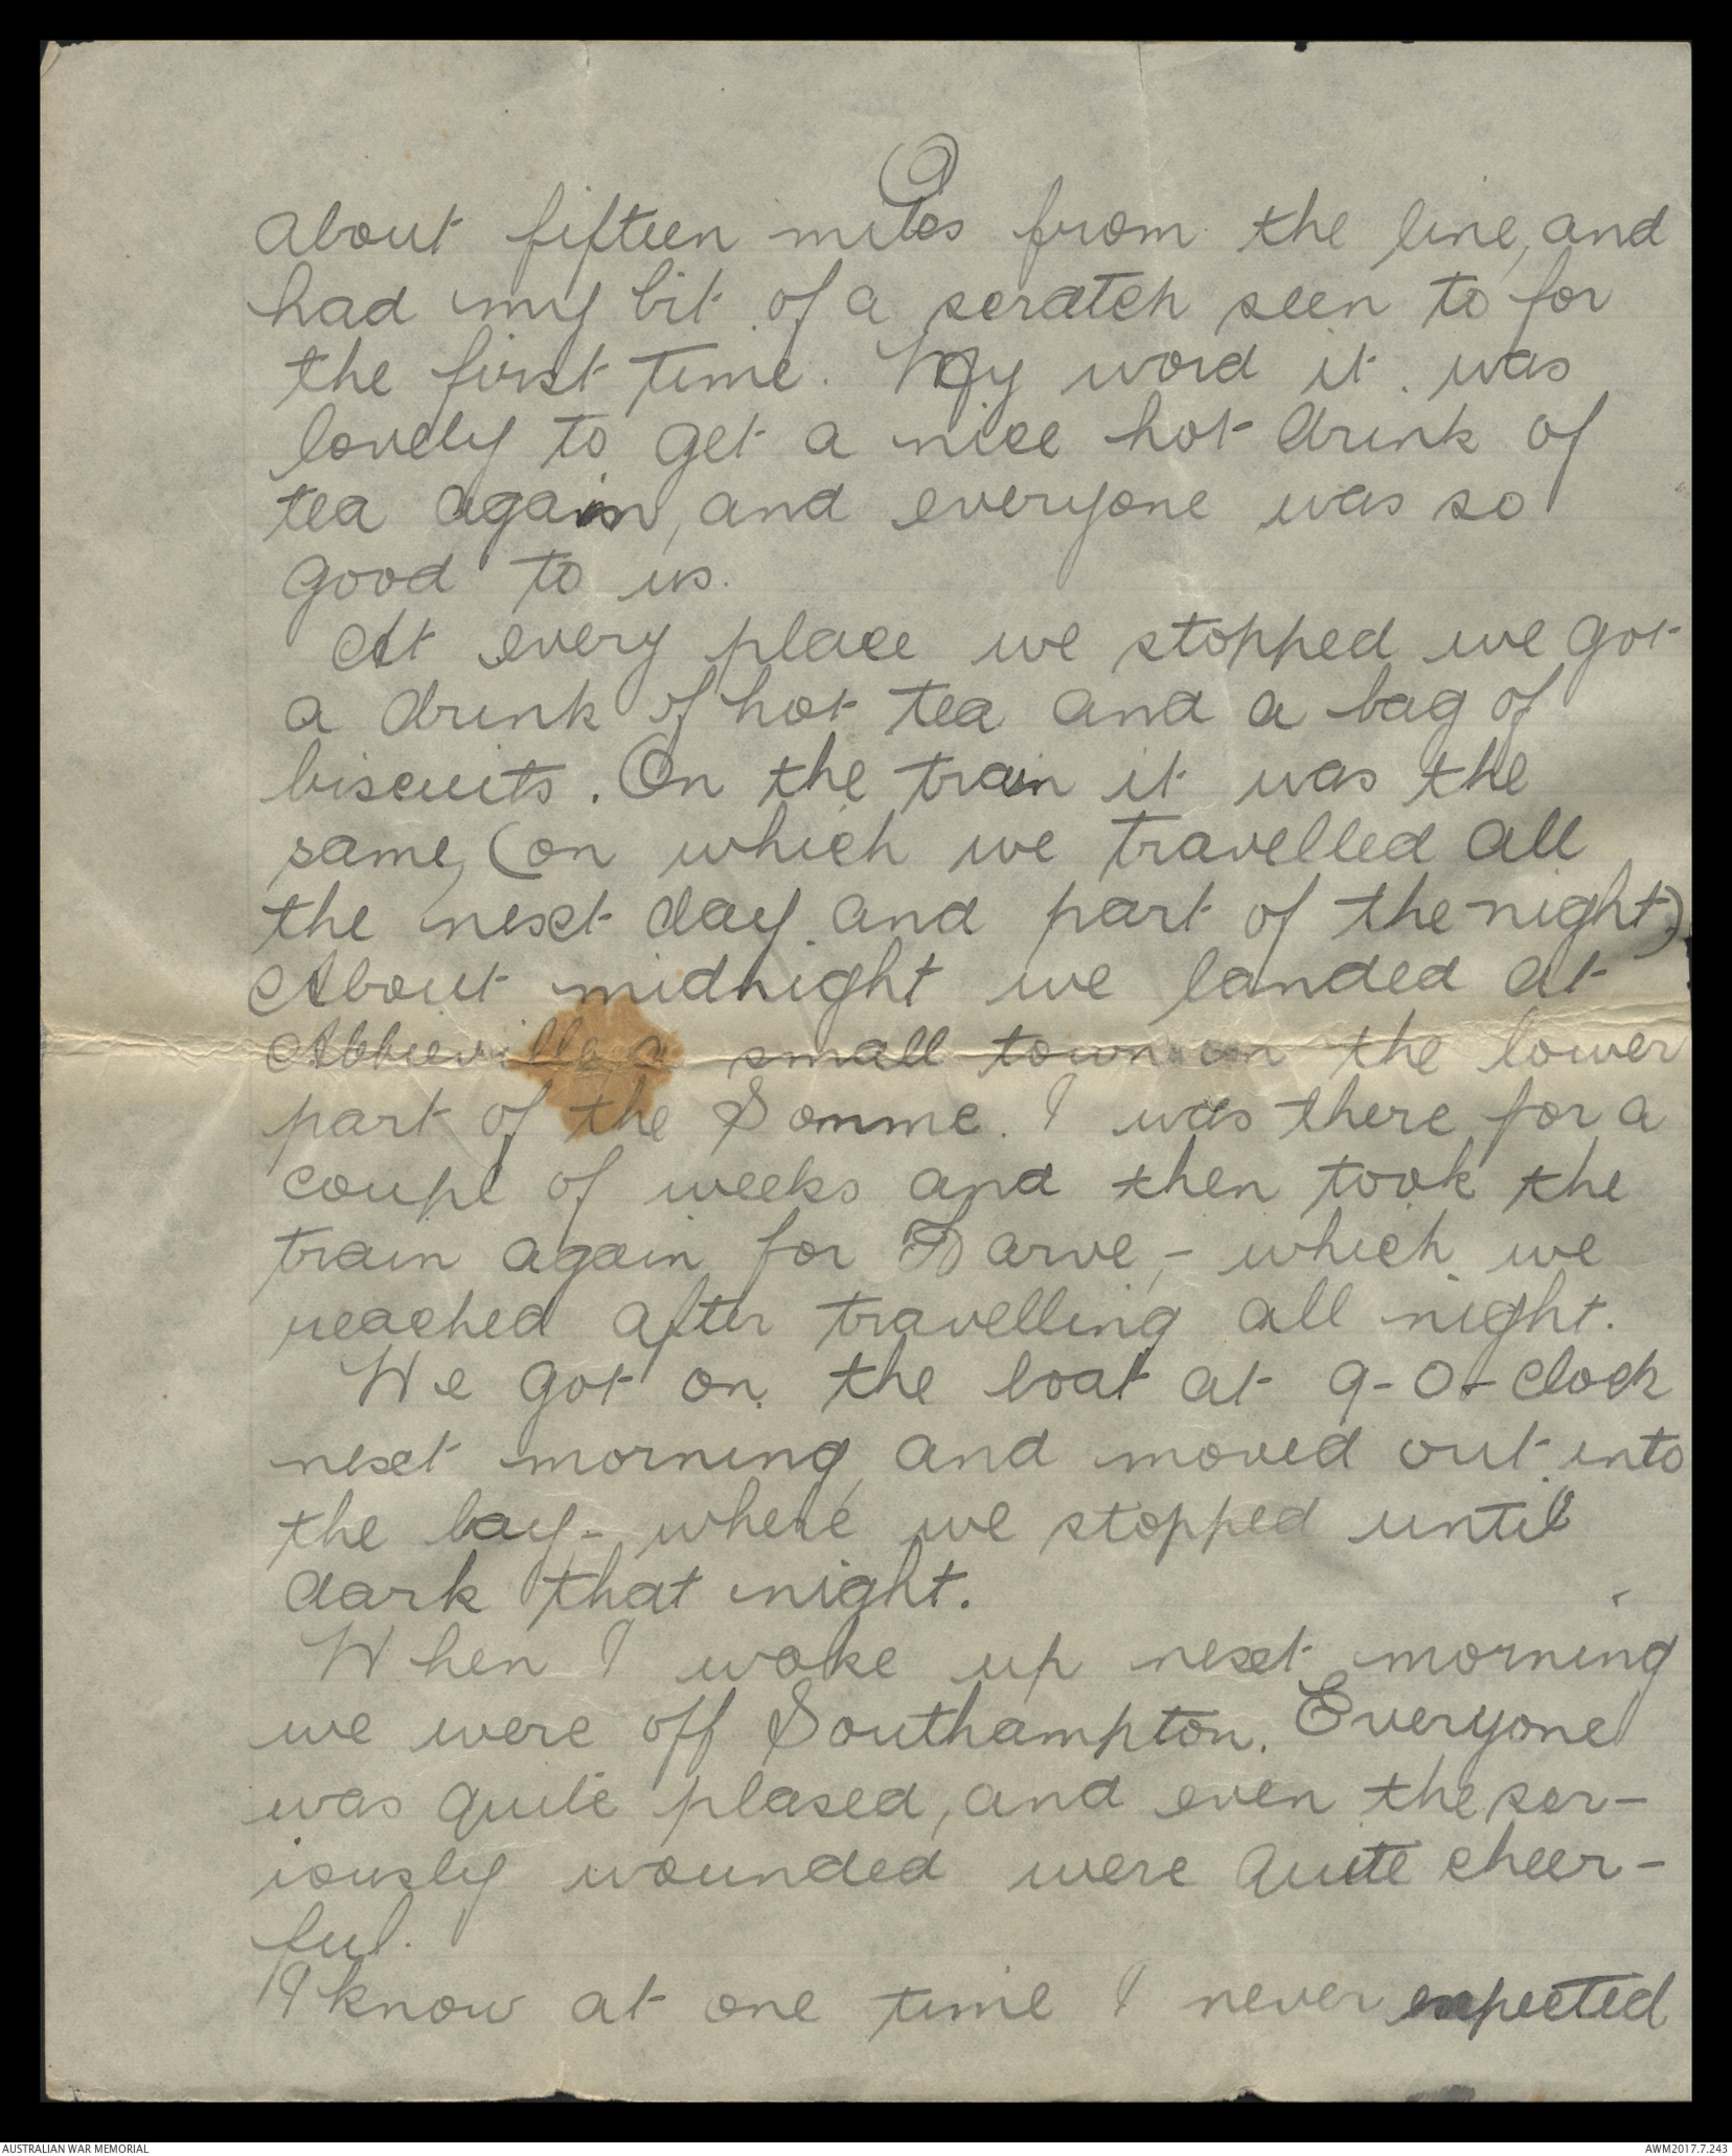 about fifteen miles from the line, and
had my bit of a scratch seen to for
the first time. My word it was
lovely to get a nice hot drink of
tea again, and everyone was so
good to us.
At every place we stopped we got
a drink of hot tea and a bag of
biscuits. On the train it was the
same, (on which we travelled all
the next day and part of the night)
About midnight we landed at
Abbieville a small town in the lower
part of the Somme. I was there for a
coupl of weeks and then took the
train again for Harve, - which we
reached after travelling all night.
We got on the boat at 9-O-clock
next morning, and moved out into
the bay - where we stopped until
dark that night.
When I woke up next morning
we were off Southampton. Everyone
was quite plased, and even the ser-
iously wounded were quite cheer-
ful.
I know at one time I never expected
AUSTRALIAN WAR MEMORIAL
AWM2017.7.243